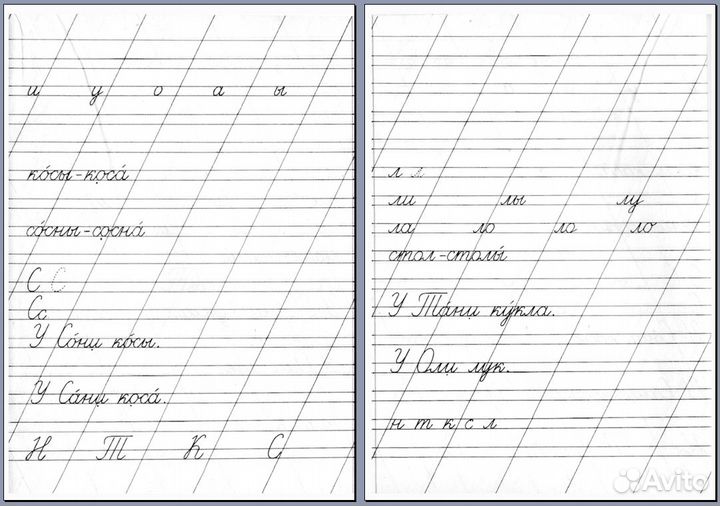 и у о а ы
ко́сы-коса́
со́сны-сосна́
С С
Сс
У Со́ни ко́сы.
У Са́ни коса́.
Н Т К С
л л
ли лы лу
ла ло ло ло
стол-столы́
У Та́ни ку́кла.
У Оли лук.
н т к с л
Avito